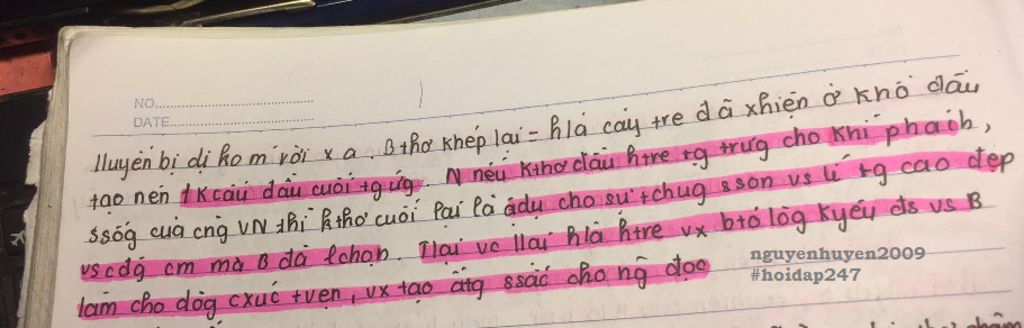 NO.
DATE
lluyến bị dị ko m' rời x a. B thơ khép lại = hlá cây tre đã xhiện ở khổ đầu
tạo nên 1 Kcấu đầu cuối tg ứg. N nếu kthơ đầu htre tg trưg cho khí phách,
ssốg của cng VN thì kthơ cuối lại là ádụ cho sự tchug sson vs lí tg cao đẹp
vs cđg cm mà B đã lchọn.
hlá htre vx btỏ lòg kyêu
vs B
làm cho dòg cxúc tvẹn, vx tạo ấtg ssắc cho ng đọc
nguyenhuyen2009
#hoidap247